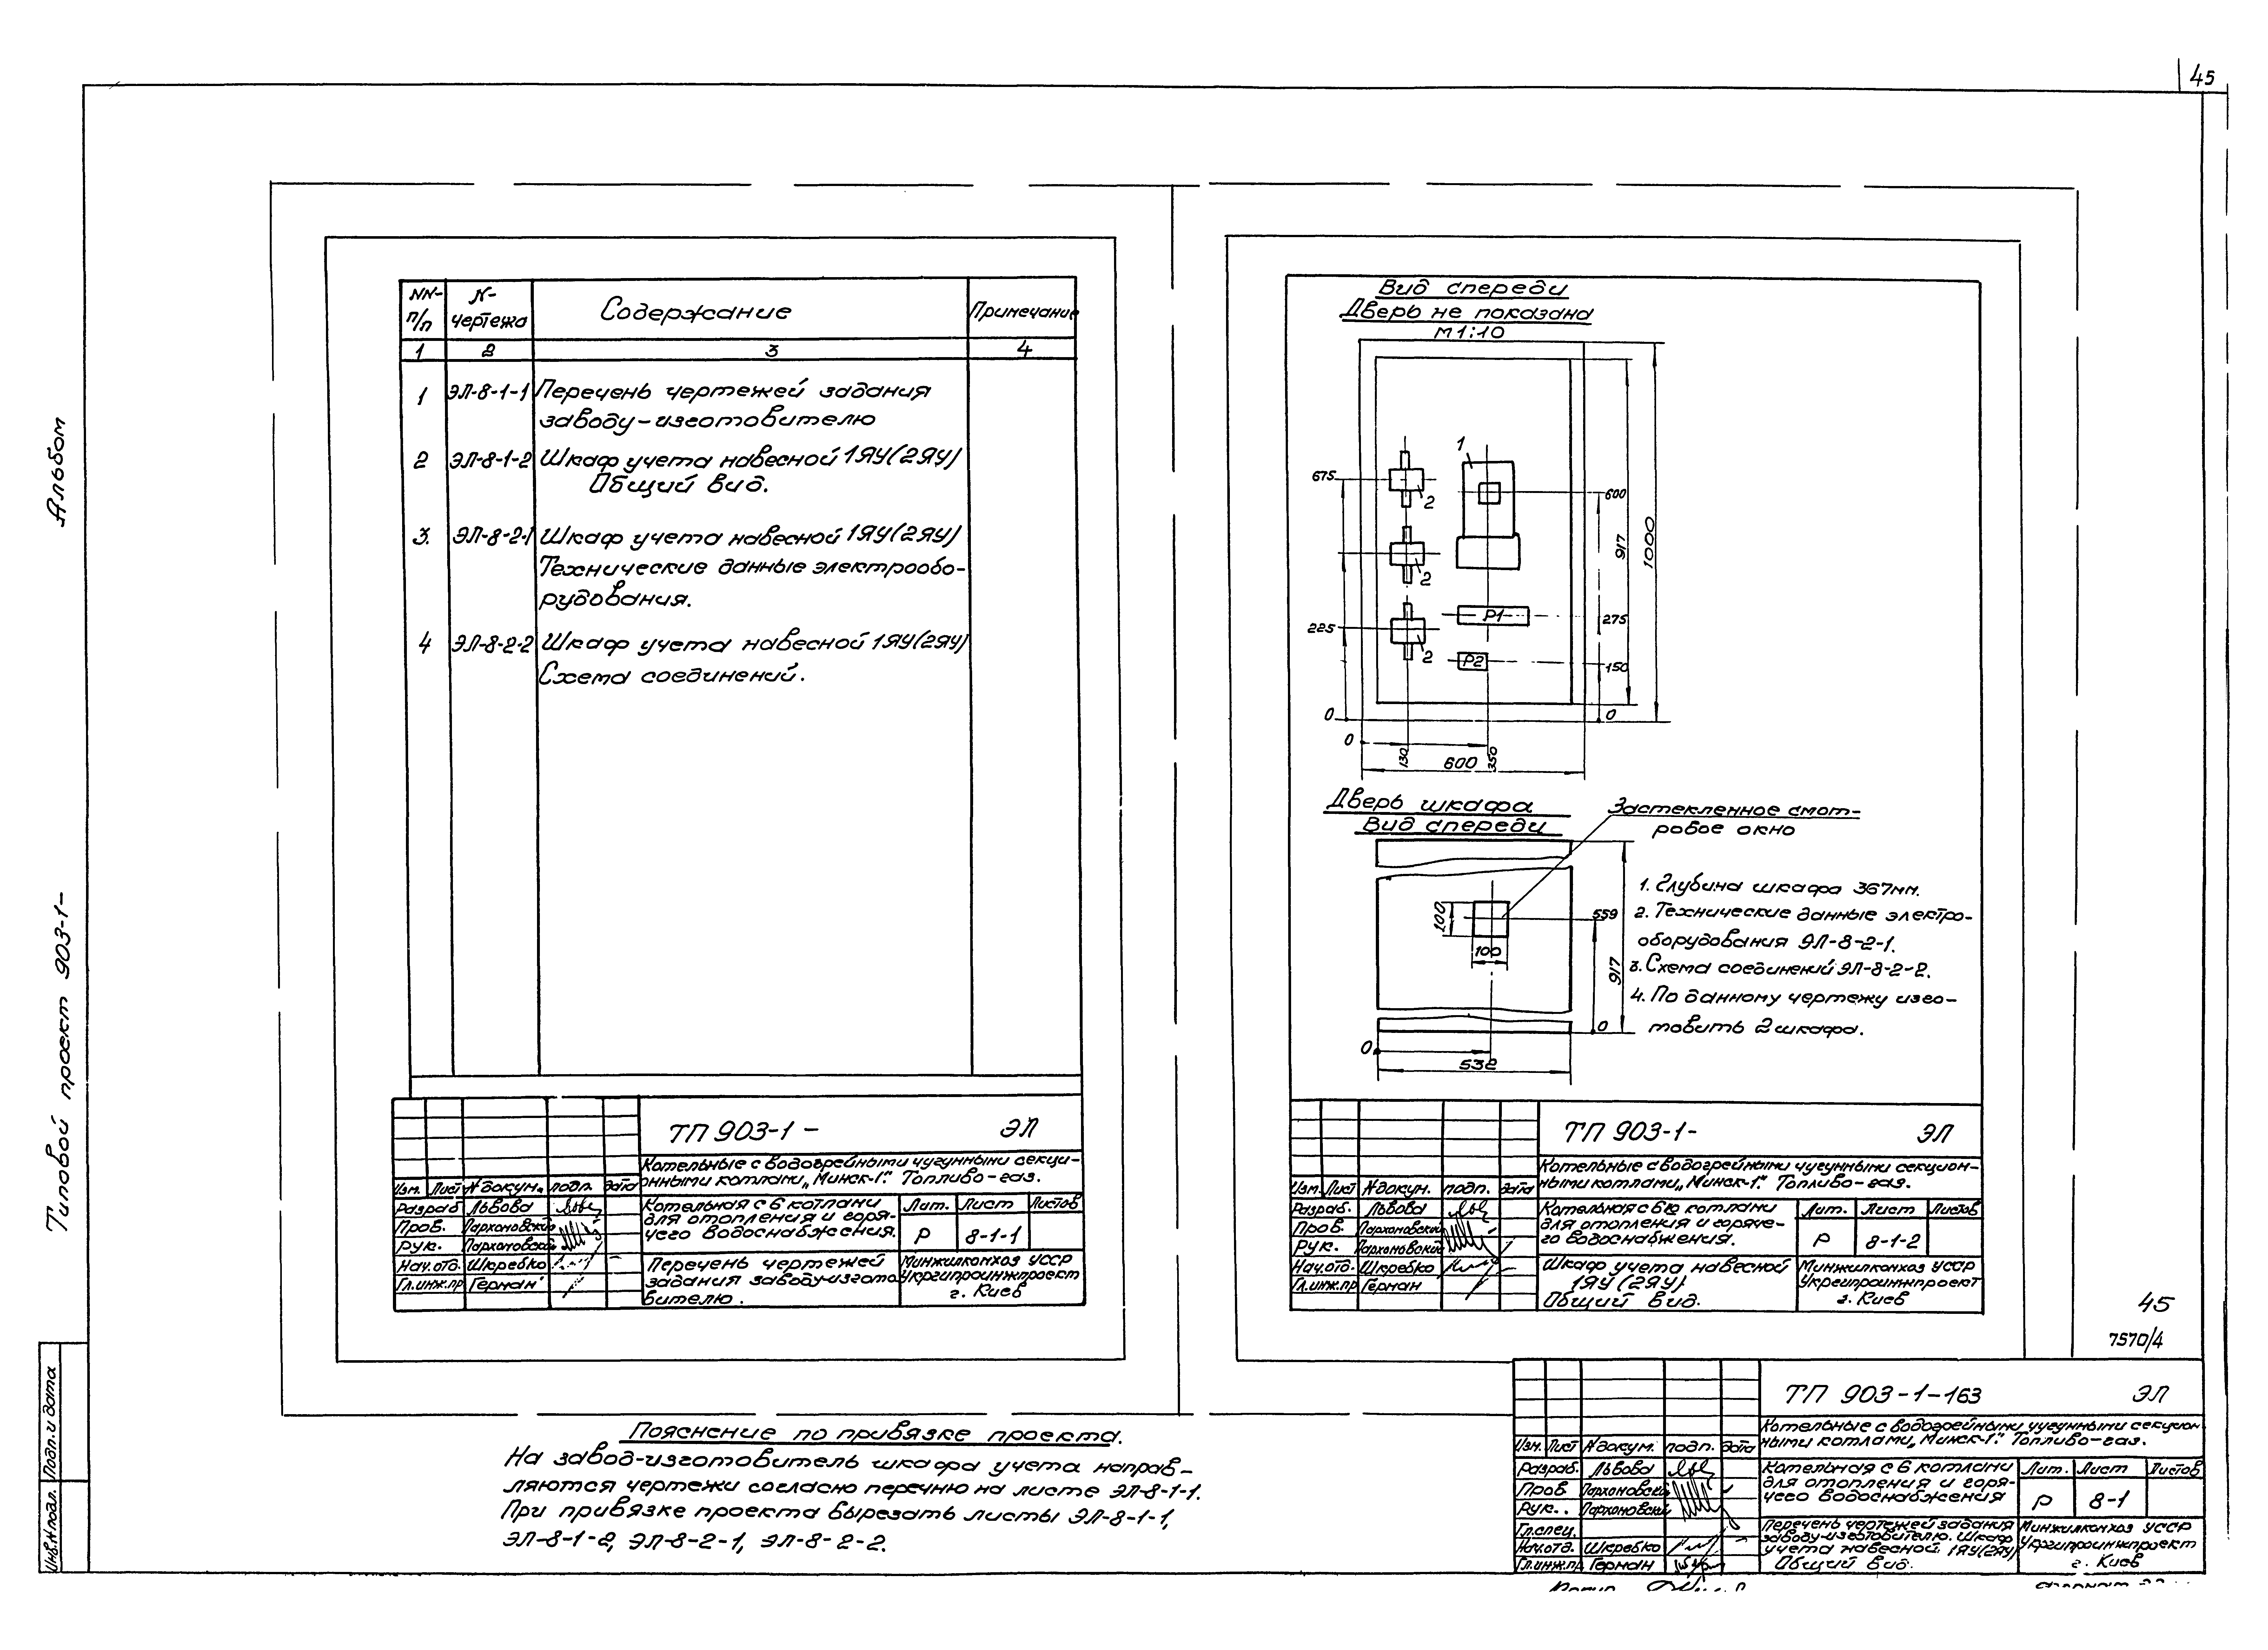 45
Альбом
Типовой проект 903-1-
Подп. и дата
Инв.Nподл.
NN-
п/п
N-
чертежа
Содержание
Примечание
1 2 3 4
1 ЭЛ-8-1-1 Перечень чертежей задания
заводу-изготовителю
2 ЭЛ-8-1-2 Шкаф учета навесной 1ЯУ(2ЯУ)
Общий вид.
3. ЭЛ-8-2-1 Шкаф учета навесной 1ЯУ(2ЯУ)
Технические данные электрообо-
рудования.
4 ЭЛ-8-2-2 Шкаф учета навесной 1ЯУ(2ЯУ)
Схема соединений.
ТП 903-1- ЭЛ
Котельные с водогрейными чугунными секци-
онными котлами „Минск-1". Топливо-газ.
Изм. Лист Nдокум. подп. дата
Разраб Львова
Пров. Пархоновский
Рук. Пархоновский
Нач.отд. Шкребко
Гл.инж.пр Герман
Котельная с 6 котлами
для отопления и горя-
чего водоснабжения.
Лит. Лист Листов
Р 8-1-1
Перечень чертежей
задания заводу-изгото
вителю.
Минжилкомхоз УССР
Укргипроинжпроект
г. Киев
Вид спереди
Дверь не показана
М 1:10
1
675
2
600
917
1000
2
Р1
275
225
2
Р2
150
0
0
0
130
350
600
Дверь шкафа
Вид спереди
Застекленное смот-
ровое окно
100
100
559
917
0
0
532
1. Глубина шкафа 367мм.
2. Технические данные электро-
оборудования ЭЛ-8-2-1.
3. Схема соединений ЭЛ-8-2-2.
4. По данному чертежу изго-
товить 2 шкафа.
ТП 903-1- ЭЛ
Котельные с водогрейными чугунными секцион-
ными котлами „Минск-1". Топливо-газ.
Изм. Лист Nдокум. подп. дата
Разраб. Львова
Пров. Пархоновский
Рук. Пархоновский
Нач.отд. Шкребко
Гл.инж.пр Герман
Котельная с 6ю котлами
для отопления и горяче-
го водоснабжения.
Лит. Лист Листов
Р 8-1-2
Шкаф учета навесной
1ЯУ(2ЯУ)
Общий вид.
Минжилкомхоз УССР
Укргипроинжпроект
г. Киев
45
7570/4
Пояснение по привязке проекта.
На завод-изготовитель шкафа учета направ-
ляются чертежи согласно перечню на листе ЭЛ-8-1-1.
При привязке проекта вырезать листы ЭЛ-8-1-1,
ЭЛ-8-1-2, ЭЛ-8-2-1, ЭЛ-8-2-2.
ТП 903-1-163 ЭЛ
Котельные с водогрейными чугунными секцион
ными котлами „Минск-1". Топливо-газ.
Изм. Лист Nдокум. подп. дата
Разраб. Львова
Пров Пархоновский
Рук.. Пархоновский
Гл.спец.
Нач.отд. Шкребко
Гл.инж.пр Герман
Котельная с 6 котлами
для отопления и горя-
чего водоснабжения
Лит. Лист Листов
Р 8-1
Перечень чертежей задания
заводу-изготовителю. Шкаф
учета навесной 1ЯУ(2ЯУ)
Общий вид.
Минжилкомхоз УССР
Укргипроинжпроект
г. Киев